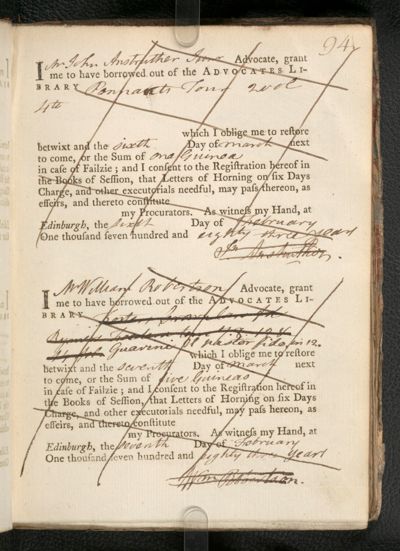 94
I Mr John Anstruther Advocate, grant
me to have borrowed out of the ADVOCATES LI-
BRARY Pennants Tour 2 vol
4to
which I oblige me to reſtore
betwixt and the sixth Day of march next
to come, or the Sum of one Guinea
in caſe of Failzie; and I conſent to the Regiſtration hereof in
the Books of Seſſion, that Letters of Horning on ſix Days
Charge, and other executorials needful, may paſs thereon, as
effeirs, and thereto conſtitute
my Procurators. As witneſs my Hand, at
Edinburgh, the sixth Day of February
One thouſand ſeven hundred and eighty three years
Jo. Anstruther.
I Mr William Robertson Advocate, grant
me to have borrowed out of the ADVOCATES LI-
BRARY
Guarini Il pastor fido in 12.
which I oblige me to reſtore
betwixt and the seventh Day of march next
to come, or the Sum of five Guineas
in caſe of Failzie; and I conſent to the Regiſtration hereof in
the Books of Seſſion, that Letters of Horning on ſix Days
Charge, and other executorials needful, may paſs hereon, as
effeirs, and thereto conſtitute
my Procurators. As witneſs my Hand, at
Edinburgh, the seventh Day of February
One thouſand ſeven hundred and eighty three years
Wm Robertson.